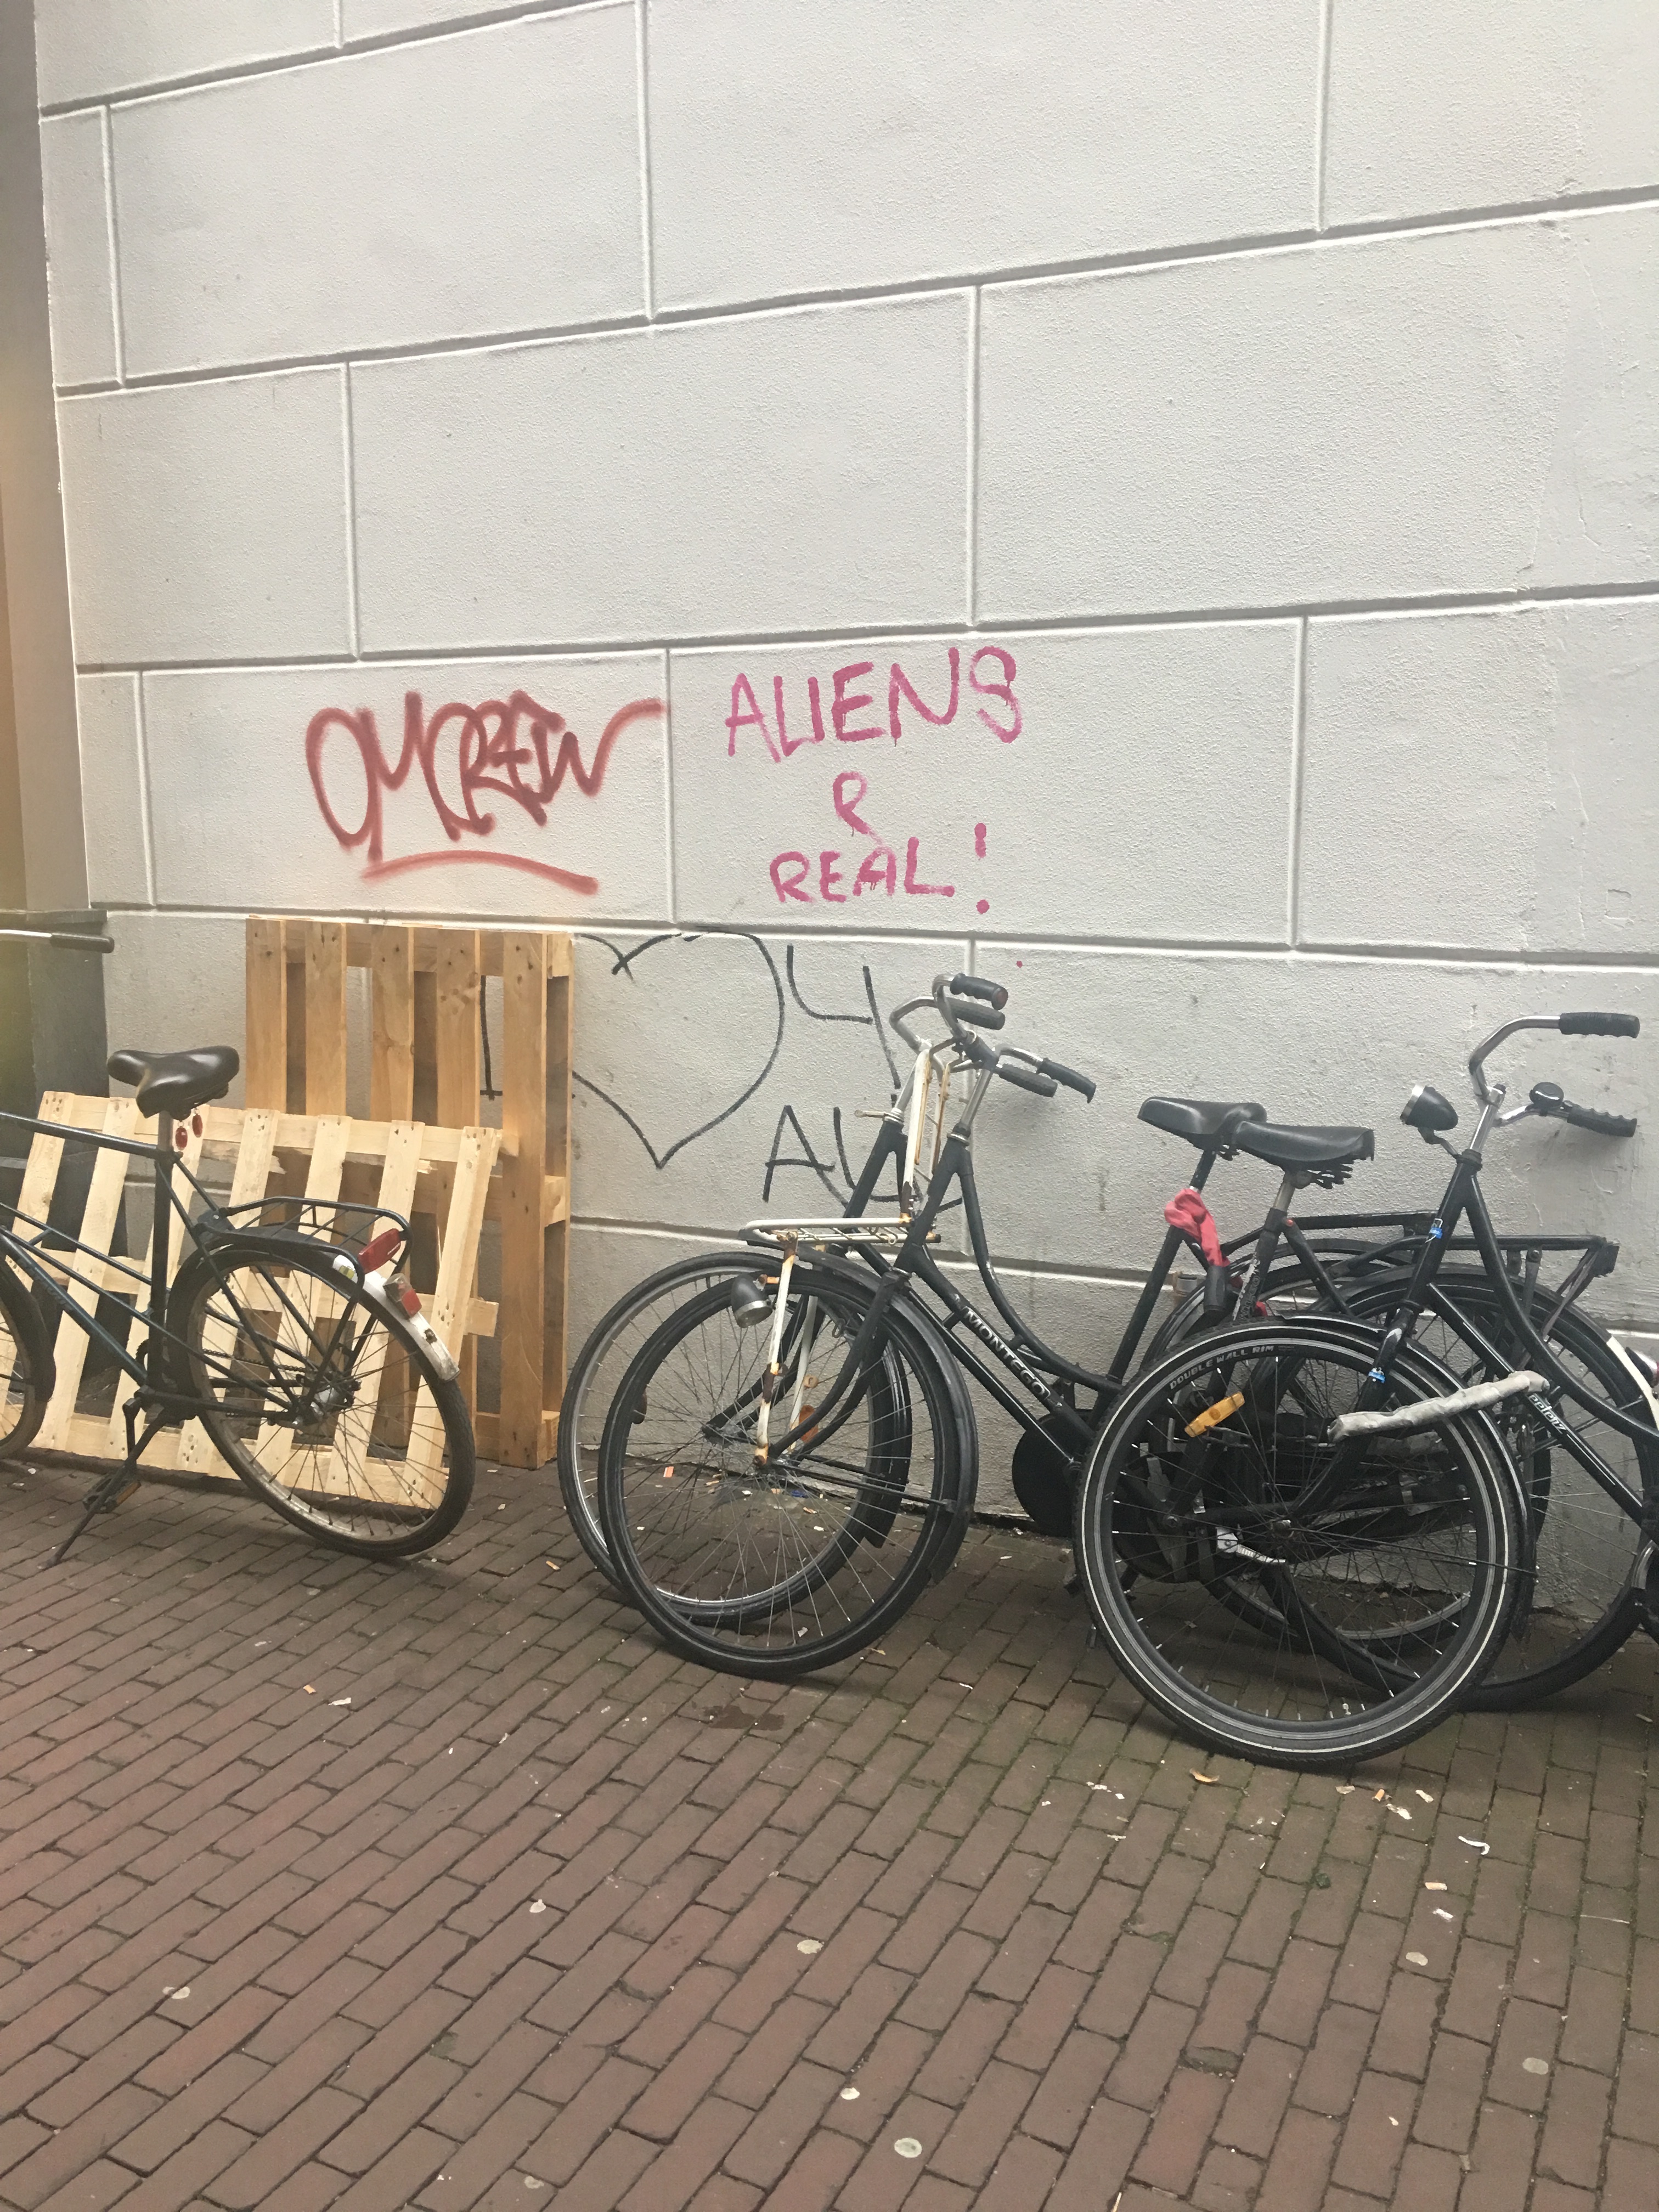 OMCREW
ALIENS
R
REAL!
I
MONTEGO
DOUBLE WALL RIM